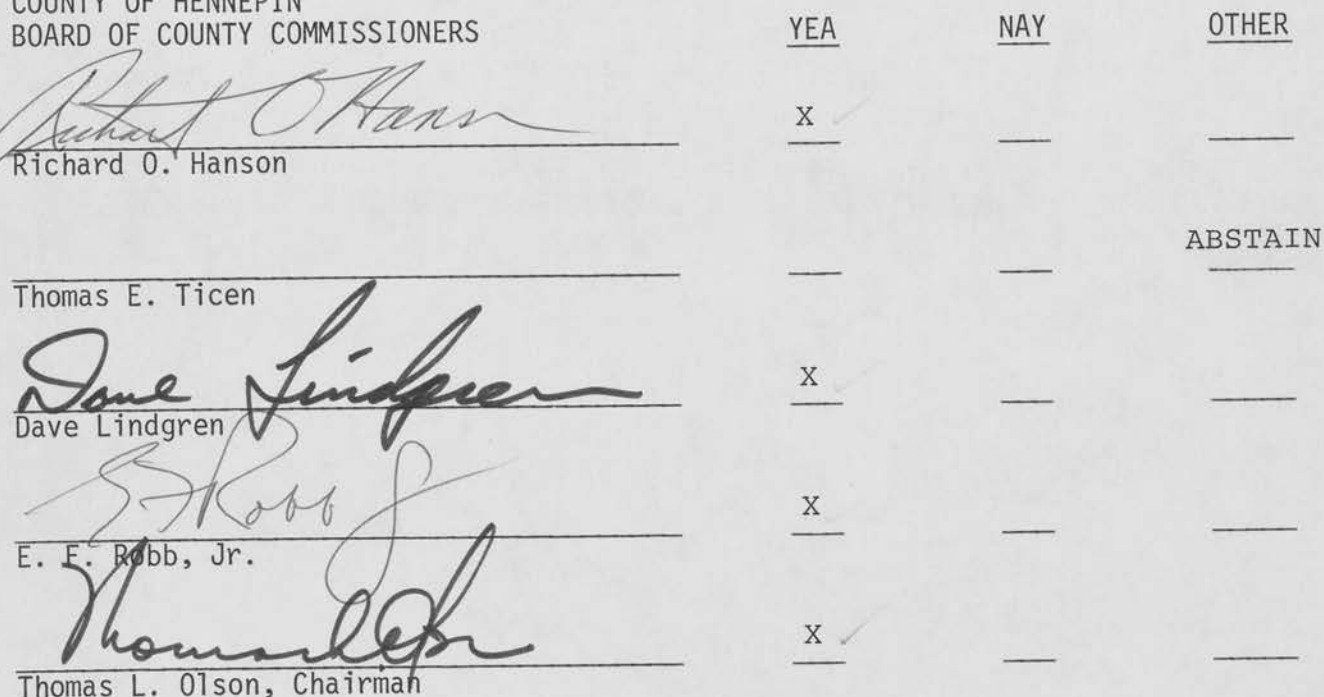 COUNTY OF HENNEPIN
BOARD OF COUNTY COMMISSIONERS YEA NAY OTHER
Richard O Hanson X
Richard O. Hanson
ABSTAIN
Thomas E. Ticen
Dave Lindgren X
Dave Lindgren
E F Robb Jr X
E. F. Robb, Jr.
Thomas L Olson X
Thomas L. Olson, Chairman